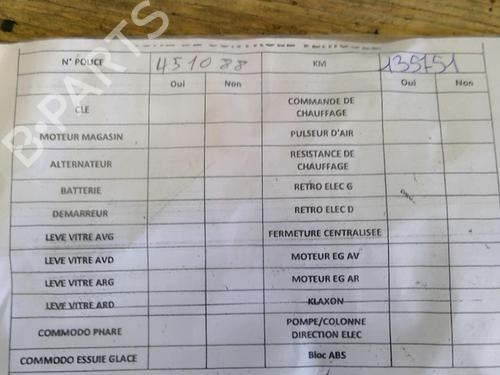 N° POLICE 451088 KM 135751
Oui Non Oui Non
CLE COMMANDE DE CHAUFFAGE
MOTEUR MAGASIN PULSEUR D'AIR
ALTERNATEUR RESISTANCE DE CHAUFFAGE
BATTERIE RETRO ELEC G
DEMARREUR RETRO ELEC D
LEVE VITRE AVG FERMETURE CENTRALISEE
LEVE VITRE AVD MOTEUR EG AV
LEVE VITRE ARG MOTEUR EG AR
LEVE VITRE ARD KLAXON
COMMODO PHARE POMPE/COLONNE DIRECTION ELEC
COMMODO ESSUIE GLACE Bloc ABS
B-PARTS